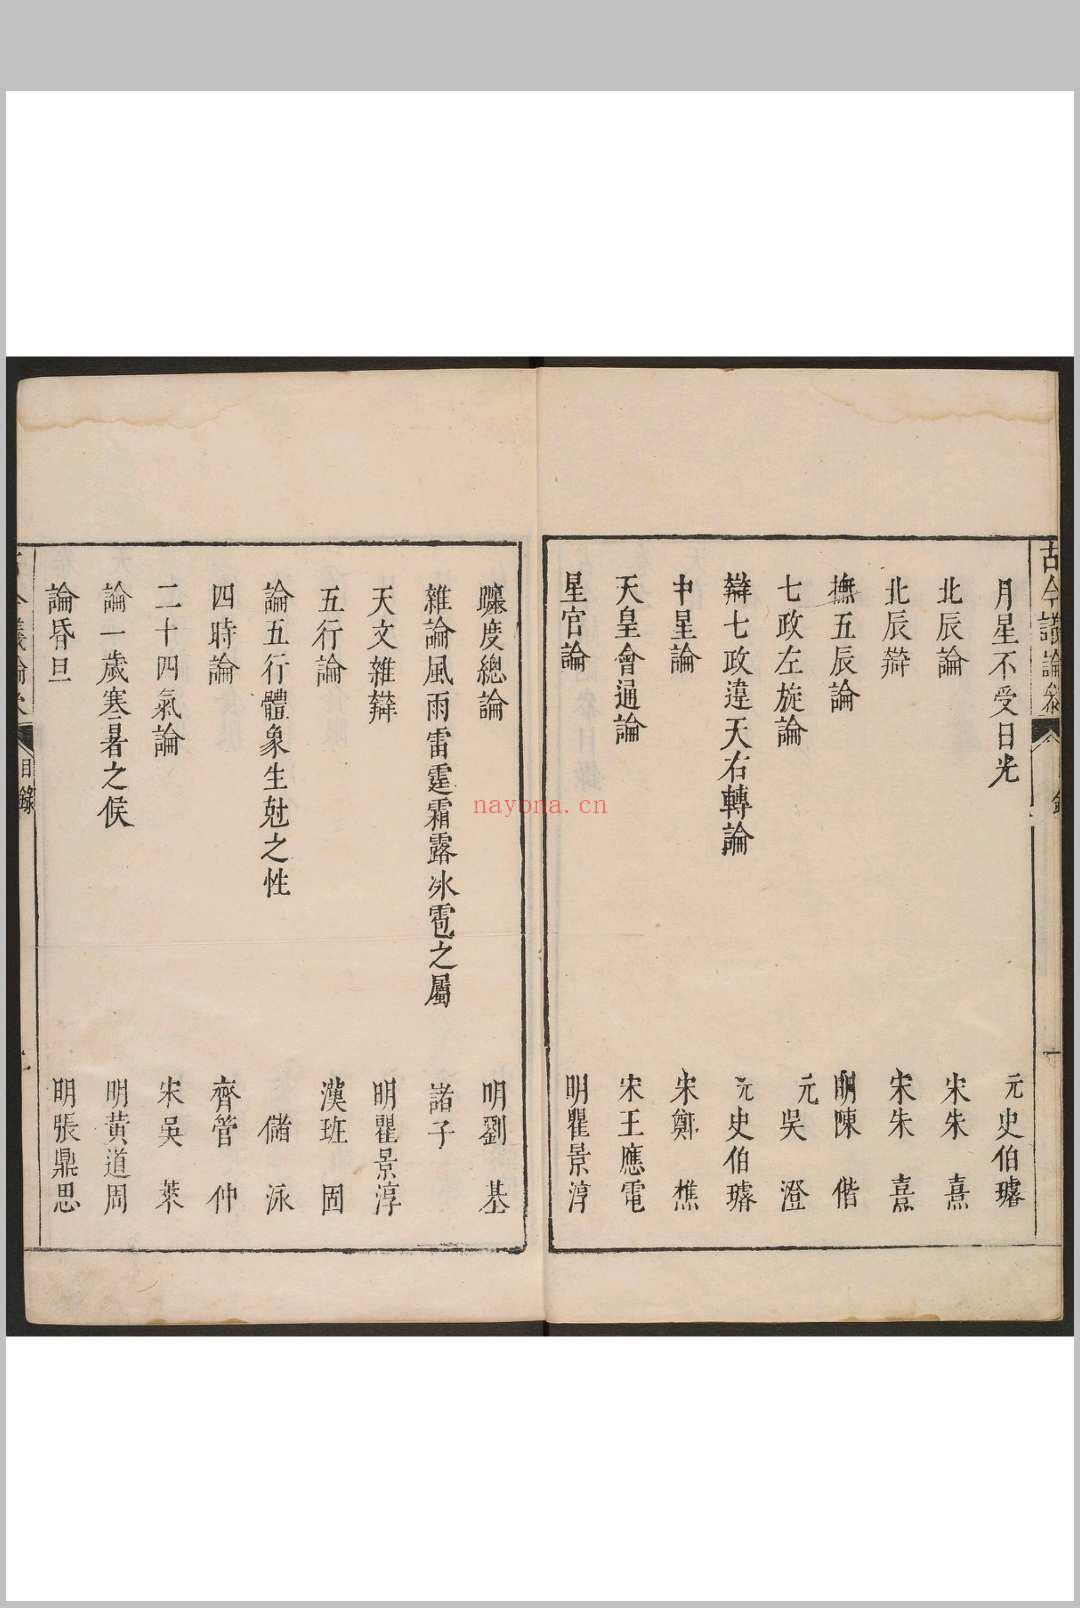 古今議論參
月星不受日光 元史伯璿
北辰論 宋朱熹
北辰辯 宋朱熹
撫五辰論 明陳偕
七政左旋論 元吳澄
辯七政違天右轉論 元史伯璿
中星論 宋鄭樵
天皇會通論 宋王應電
星官論 明瞿景淳
躔度總論 明劉基
雜論風雨雷霆霜露冰雹之屬 諸子
天文雜辯 明瞿景淳
五行論 漢班固
論五行體象生尅之性 儲泳
四時論 齊管仲
二十四氣論 宋吳萊
論一歲寒暑之候 明黃道周
論昏旦 明張鼎思
目錄
nayona.cn